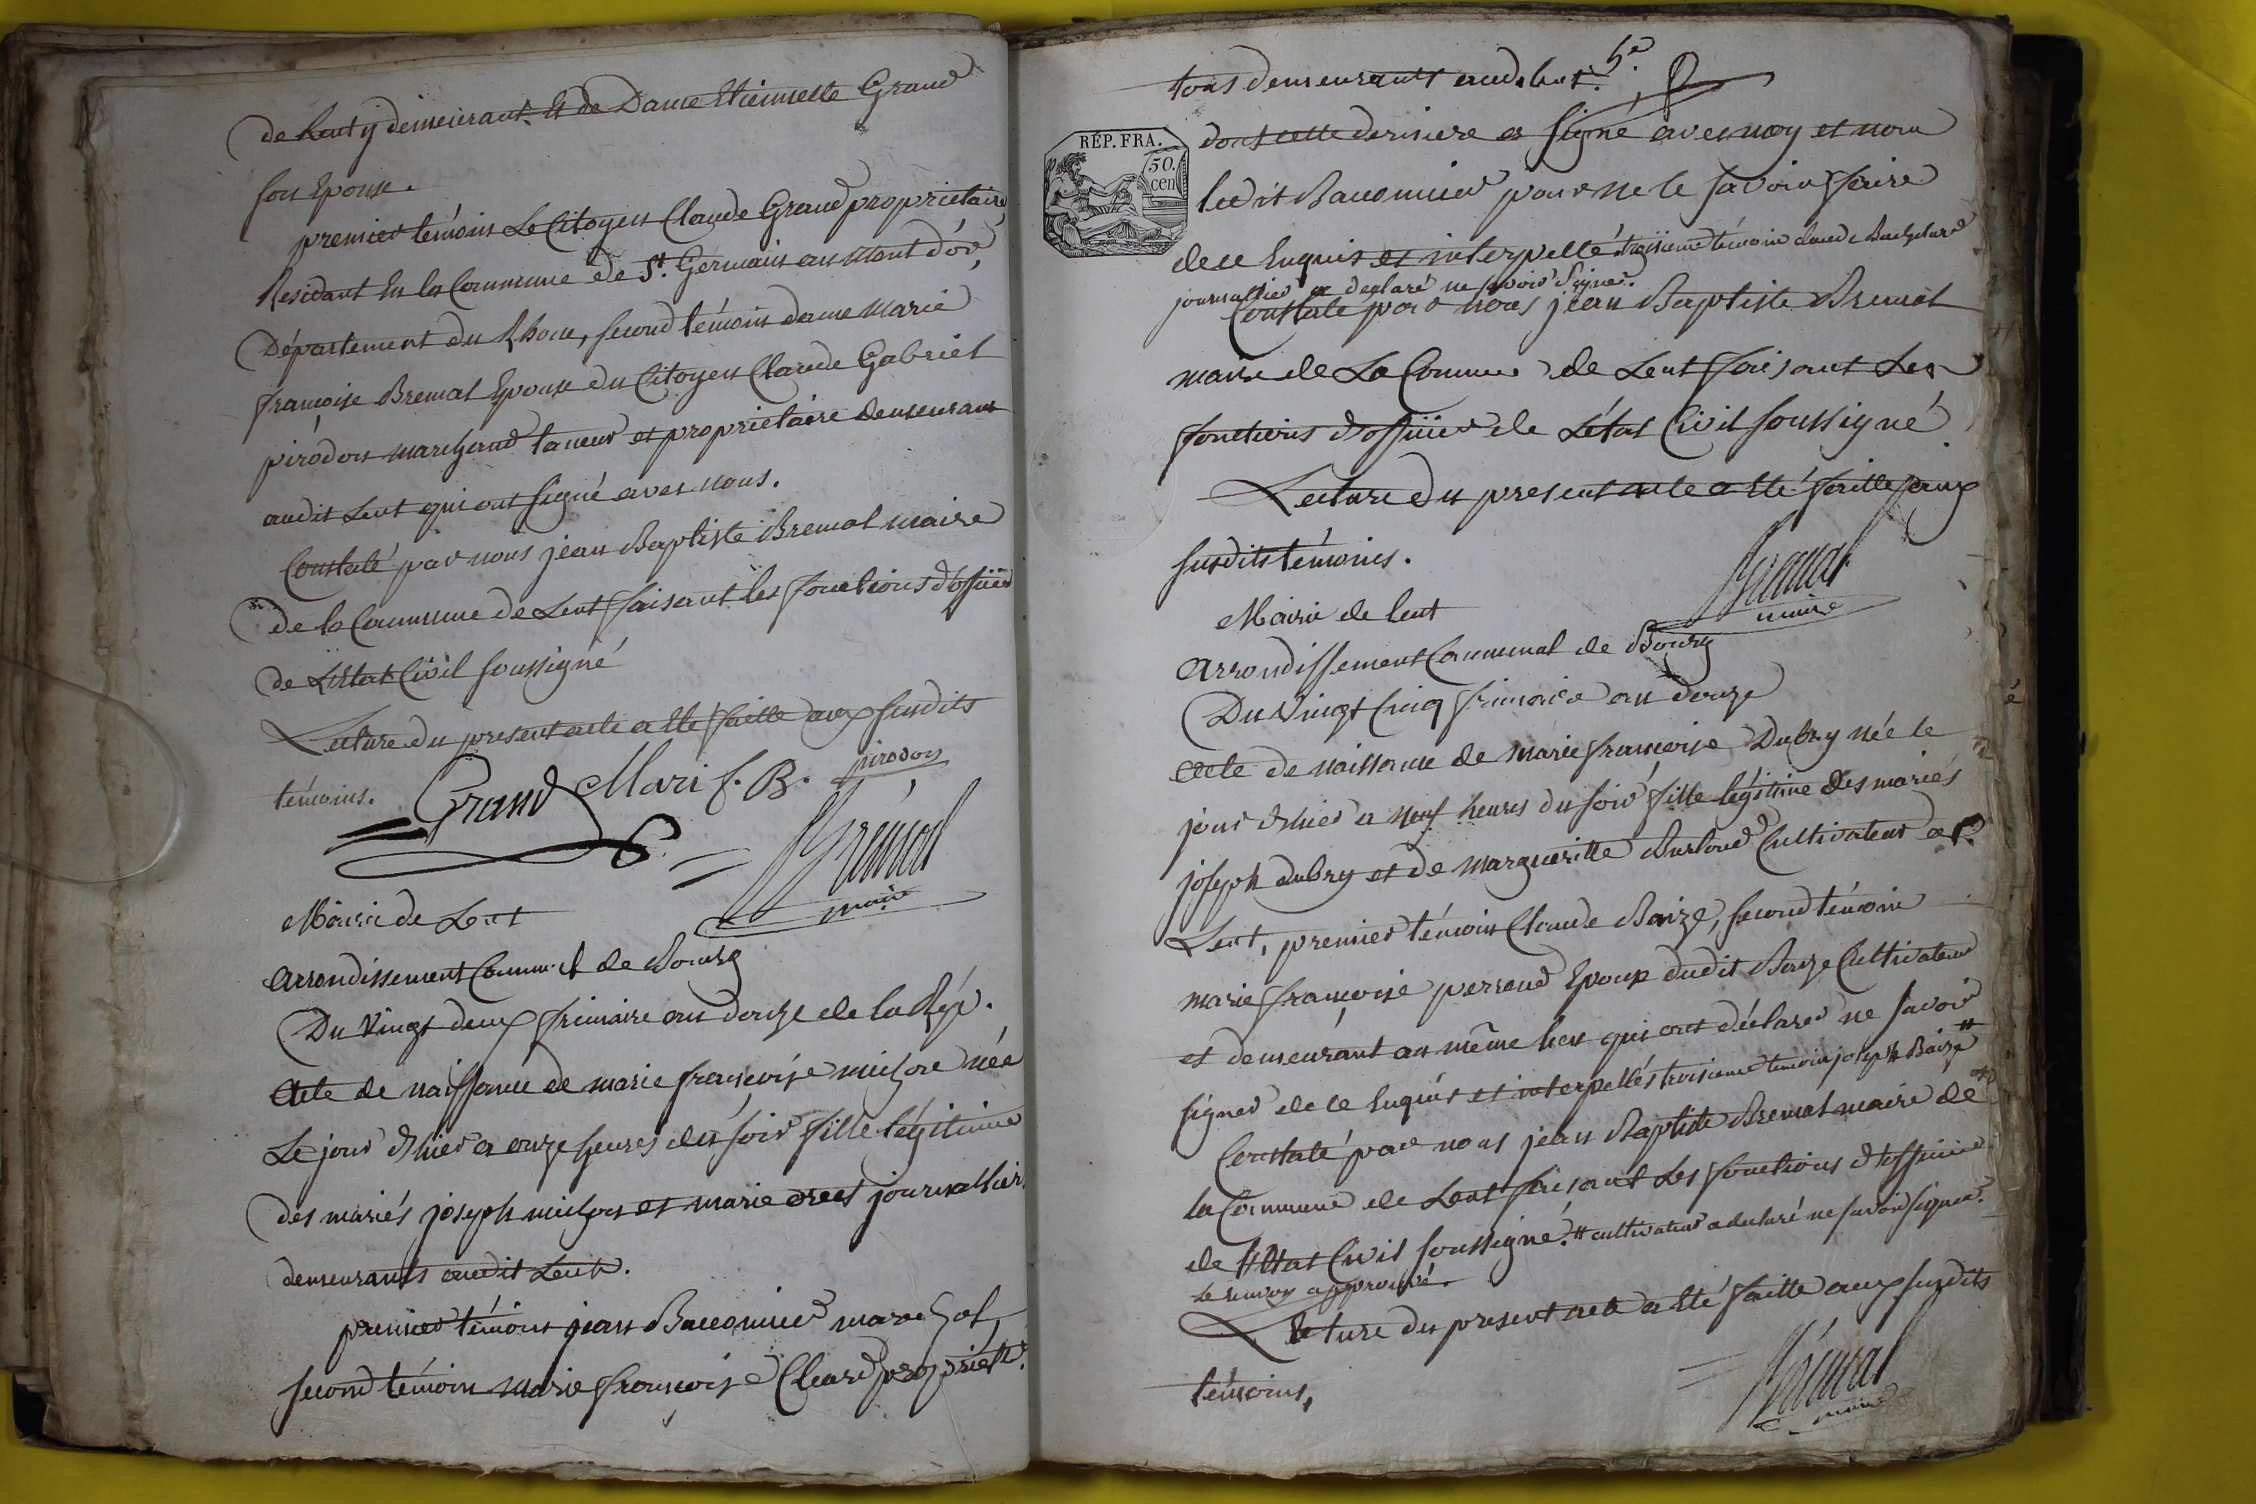 de Lent y demeurant. Et de Dame Etiennette Grand
son Epouse.
premier témoin Le Citoyen Claude Grand propriétaire
Residant En la Commune de St. Germain au Mont d'or,
Département du Rhone, second témoin dame Marie
françoise Bremal Epouse du Citoyen Claude Gabriel
pirodon marchand taneur et propriétaire demeurant
audit Lent qui ont signé avec nous.
Constaté par nous jean Baptiste Bremal maire
de la Commune de Lent faisant les fonctions d'officier
de L'Etat Civil soussigné
Lecture du present acte a Eté faitte aux susdits
témoins. Grand Mari f. B. pirodon
Brémal
maire
Mairie de Lent
Arrondissement Commal de Bourg
Du Vingt deux frimaire an douze de la Rép.
Acte de naissance de marie françoise michon née
Le jour d'hier a onze heures du soir fille légitime
des mariés joseph michon et marie journalliers
demeurants audit Lent.
premier témoin jean Baconnier marechal,
second témoin marie françoise Cleard propriétre.
tous demeurants audt. Lent. 5e.
REP. FRA.
50.
cen
dont cette derniere a signé avec moy et non
ledit Baconnier pour ne le savoir faire
de ce Enquis et interpellé troisieme témoin claude Buchelard
journallier a declaré ne savoir signer.
Constaté par nous jean Baptiste Bremal
maire de La Commune de Lent faisant Les
fonctions d'officier de L'état Civil soussigné
Lecture du present acte a Eté faitte aux
susdits témoins.
Bremal
maire
Mairie de Lent
Arrondissement Communal de Bourg
Du Vingt Cinq frimaire an douze
Acte de naissance de marie françoise Dubry née le
jour d'hier a neuf heures du soir fille légitime des mariés
joseph dubry et de margueritte Burloud Cultivateur a
Lent, premier témoin Claude Baize, second témoin
marie françoise perroud Epouse dudit Baize Cultivateur
et demeurant au même lieu qui ont déclarer ne savoir
signer de ce Enquis et interpellés troisieme temoin joseph Baize #
Constaté par nous jean Baptiste Bremal maire de
la Commune de Lent faisant Les fonctions d'officier
de l'Etat Civil soussigné. # cultivateur a declaré ne savoir signer.
Le renvoy approuvé.
Lecture du present acte a Eté faitte aux susdits
témoins,
Brémal
maire